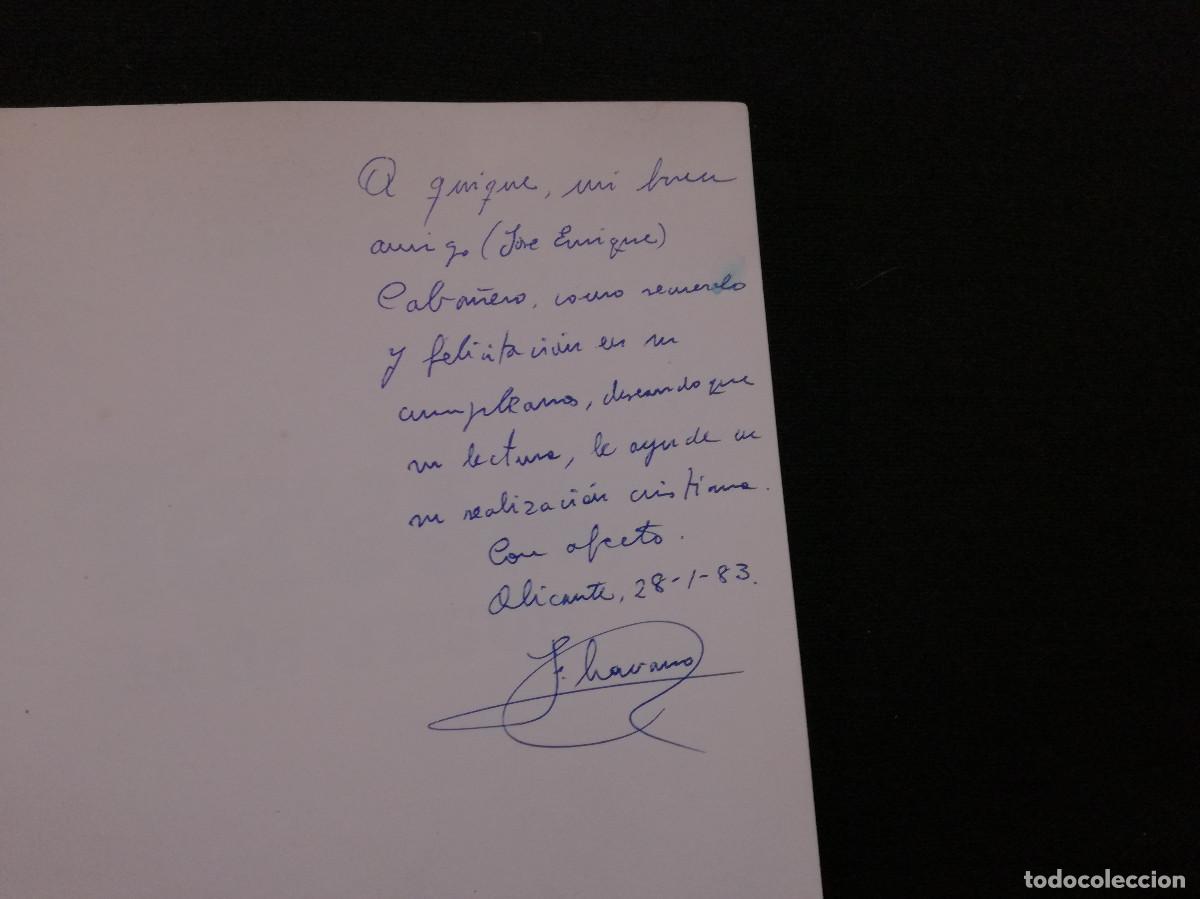 A quique, mi buen
amigo (Jose Enrique)
Cabañero, como recuerdo
y felicitación en su
cumpleaños, deseando que
su lectura, le ayude en
su realización cristiana.
Con afecto.
Alicante, 28-1-83.
todocoleccion